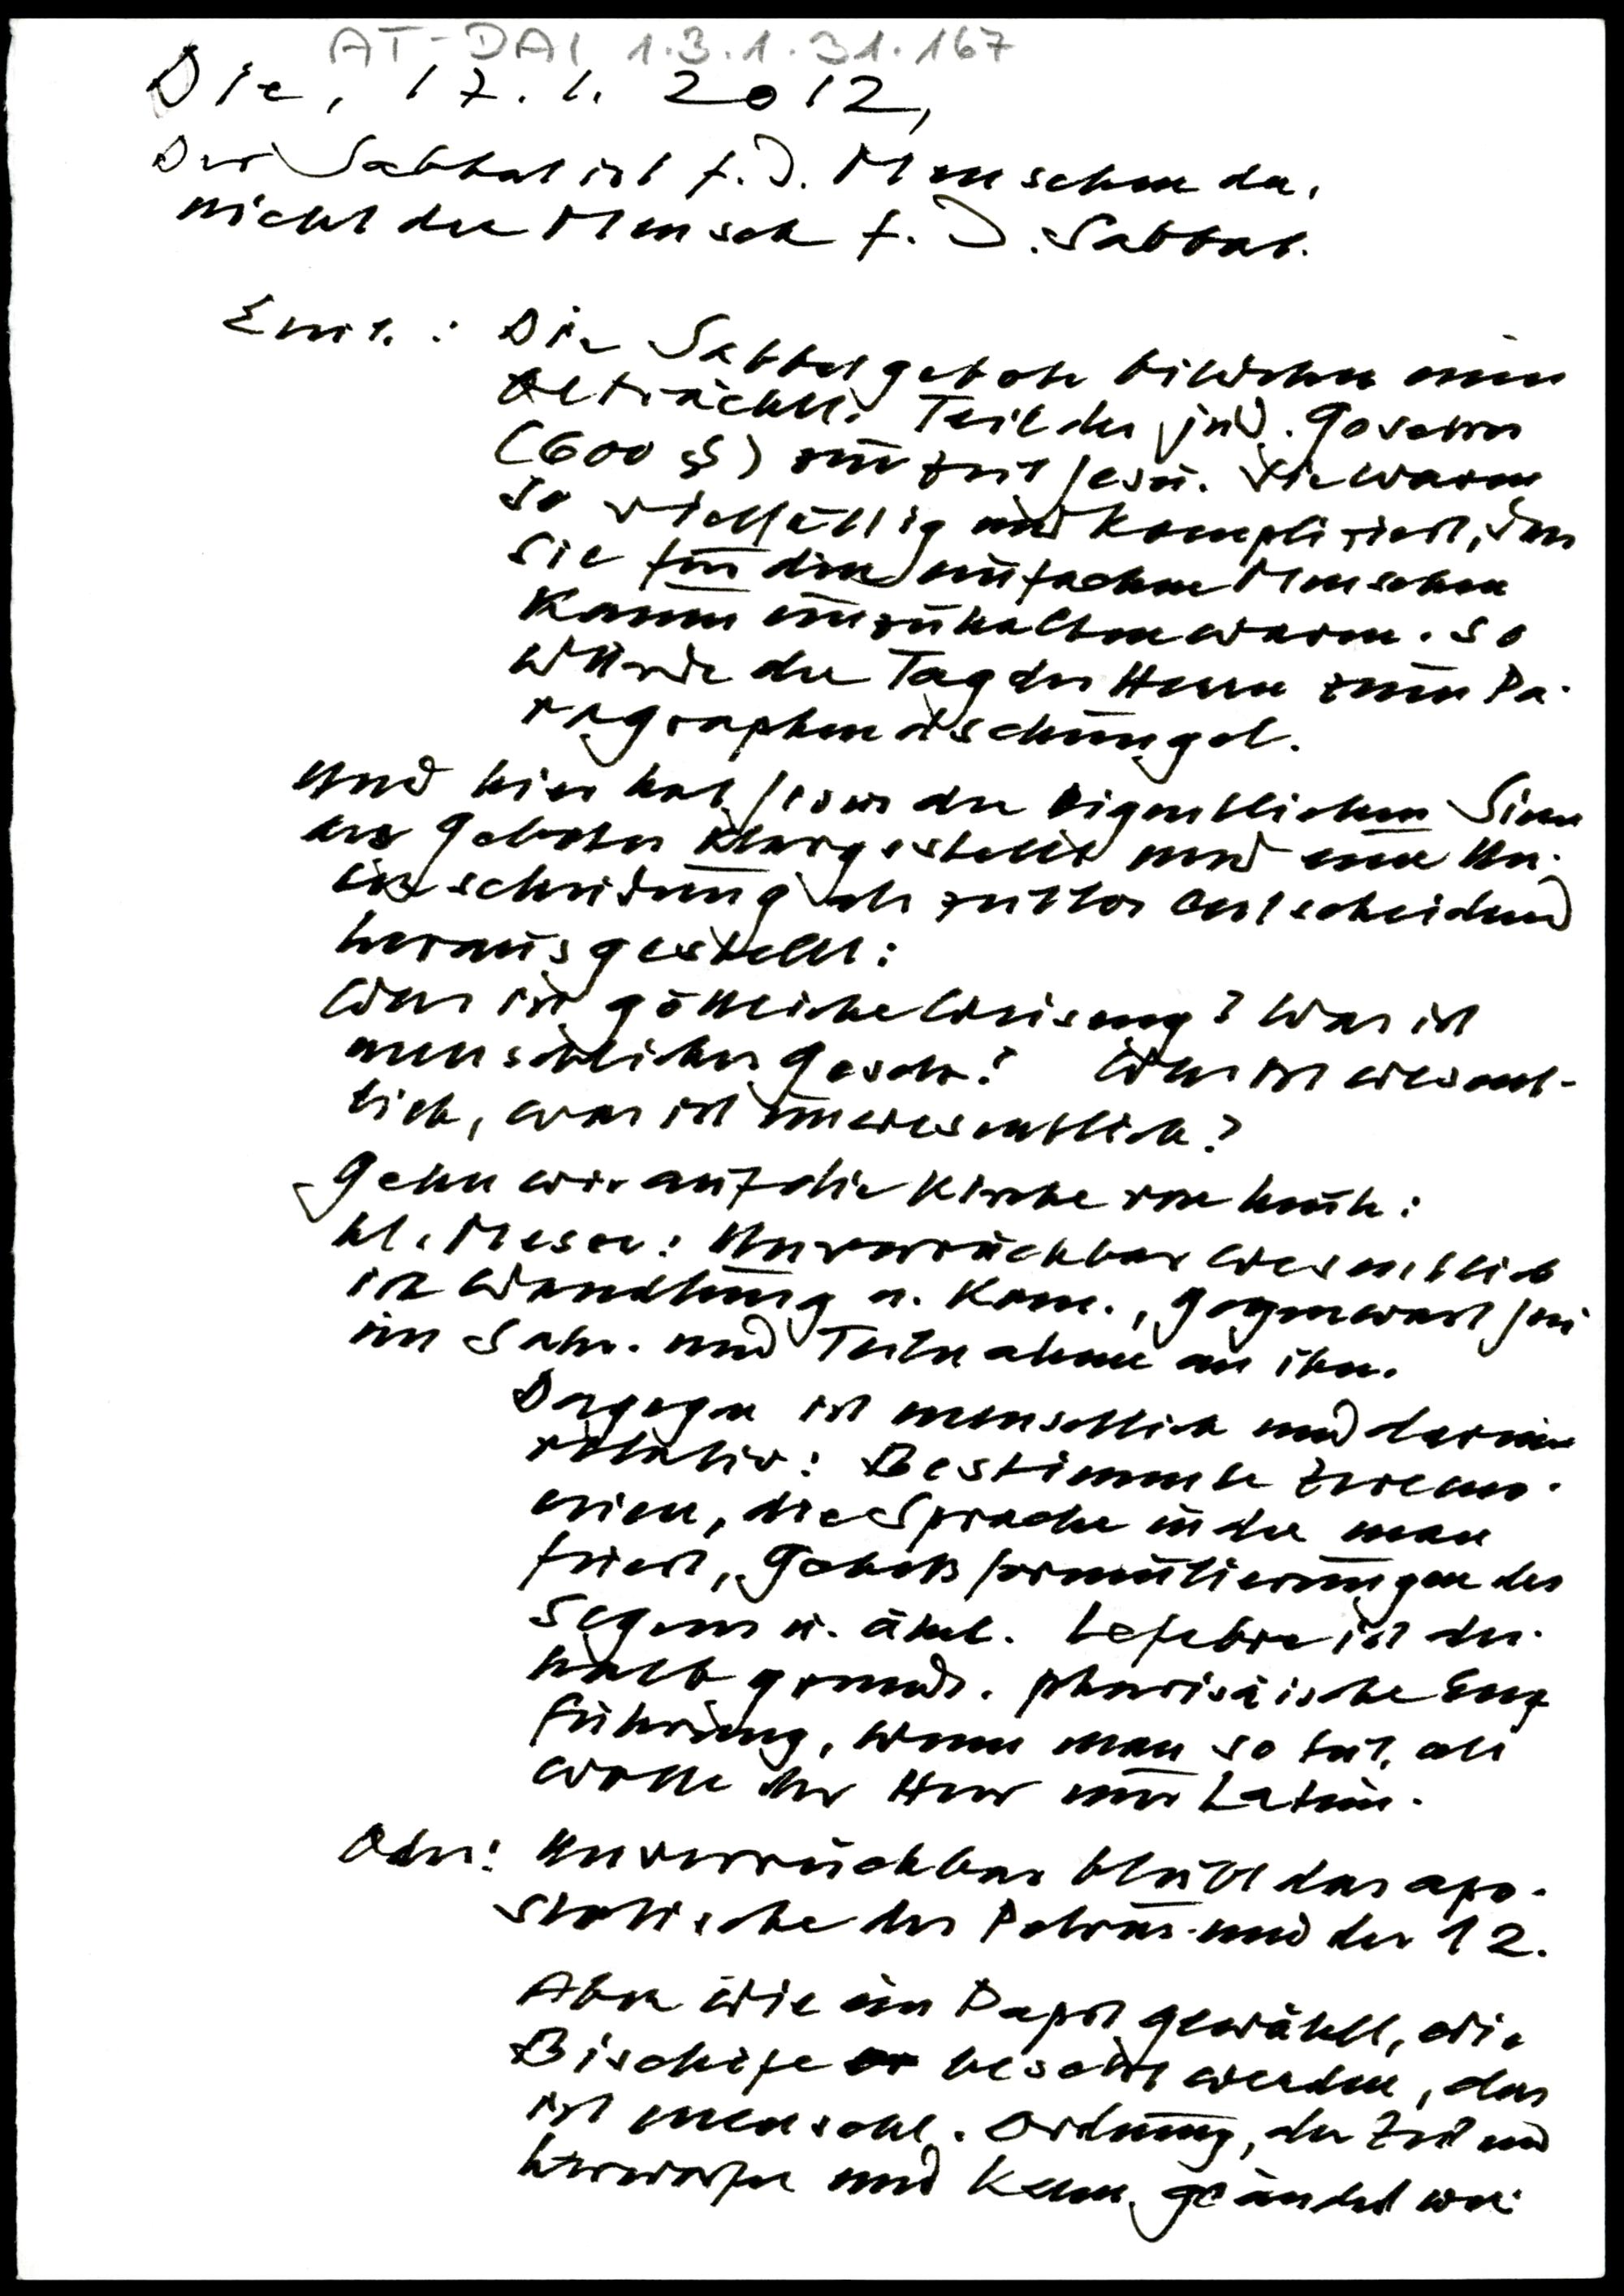 AT-DAI 1.3.1.31.167
Die, 17.1.2012,
Der Sabbat ist f.d. Menschen da,
nicht der Mensch f.d. Sabbat.
Einl.: Die Sabbatgebote bildeten einen
beträchtl. Teil der jüd. Gesetze
(600 §§) zur Zeit Jesu. Sie waren
so vielfältig und kompliziert, dass
sie für den einfachen Menschen
kaum einzuhalten waren. So
wurde der Tag des Herrn zum Pa-
ragraphendschungel.
Und hier hat Jesus den eigentlichen Sinn
des Gebotes klargestellt und eine Un-
terscheidung als zeitlos entscheidend
herausgestellt:
Was ist göttliche Weisung? Was ist
menschliches Gesetz? Was ist wesent-
lich, was ist unwesentlich?
Gehn wir auf die Kirche von heute:
hl. Messe: Unverrückbar wesentlich
ist Wandlung u. Kom., Gegenwart Jesu
im Sakr. und Teilnahme an ihm.
Dagegen ist menschlich und darum
relativ: Bestimmte Zeremo-
nien, die Sprache in der man
feiert, Gebetsformulierungen des
Segens u. ähnl. Lefebre ist des-
halb grunds. pharisäische Eng
führung, wenn man so tut, als
wolle der Herr nur Latein.
Oder: Unverrückbar bleibt das apo-
stolische des Petrus und der 12.
Aber wie ein Papst gewählt, wie
Bischöfe besetzt werden, das
ist menschl. Ordnung, der Zeit
unterworfen und kann geändert wer-